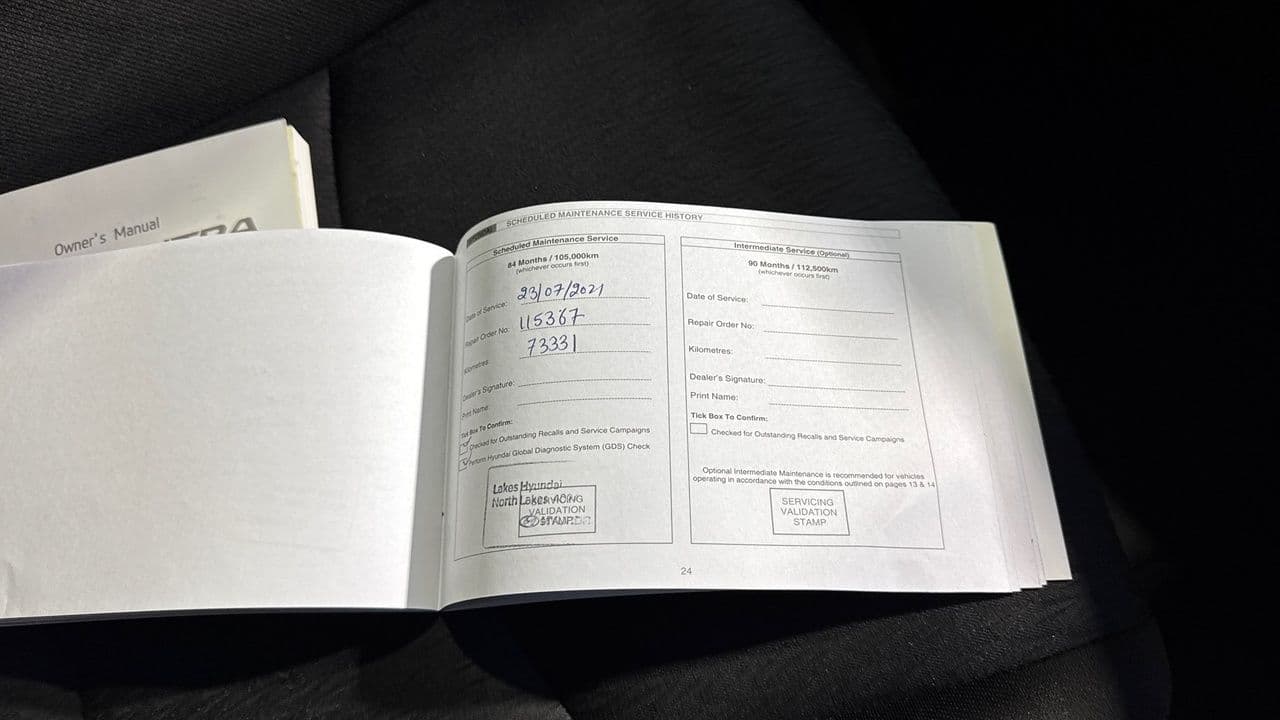 Owner's Manual
SCHEDULED MAINTENANCE SERVICE HISTORY
Scheduled Maintenance Service
84 Months / 105,000km
(whichever occurs first)
Date of Service: 23/07/2021
Repair Order No: 115367
Kilometres: 73331
Dealer's Signature:
Print Name:
Tick Box To Confirm:
Checked for Outstanding Recalls and Service Campaigns
Perform Hyundai Global Diagnostic System (GDS) Check
Lakes Hyundai
North Lakes
SERVICING
VALIDATION
STAMP
Intermediate Service (Optional)
90 Months / 112,500km
(whichever occurs first)
Date of Service:
Repair Order No:
Kilometres:
Dealer's Signature:
Print Name:
Tick Box To Confirm:
Checked for Outstanding Recalls and Service Campaigns
Optional Intermediate Maintenance is recommended for vehicles
operating in accordance with the conditions outlined on pages 13 & 14
SERVICING
VALIDATION
STAMP
24